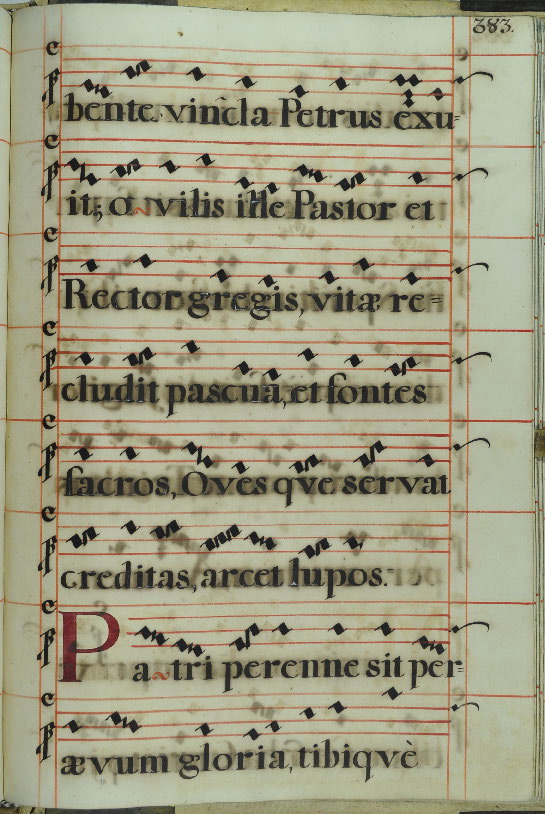 383.
bente vincla Petrus exu=
it; o vilis ille Pastor et
Rector gregis, vitæ re=
cludit pascua, et fontes
sacros, Oves qve servat
creditas, arcet lupos.
Patri perenne sit per=
ævum gloria, tibiqvè